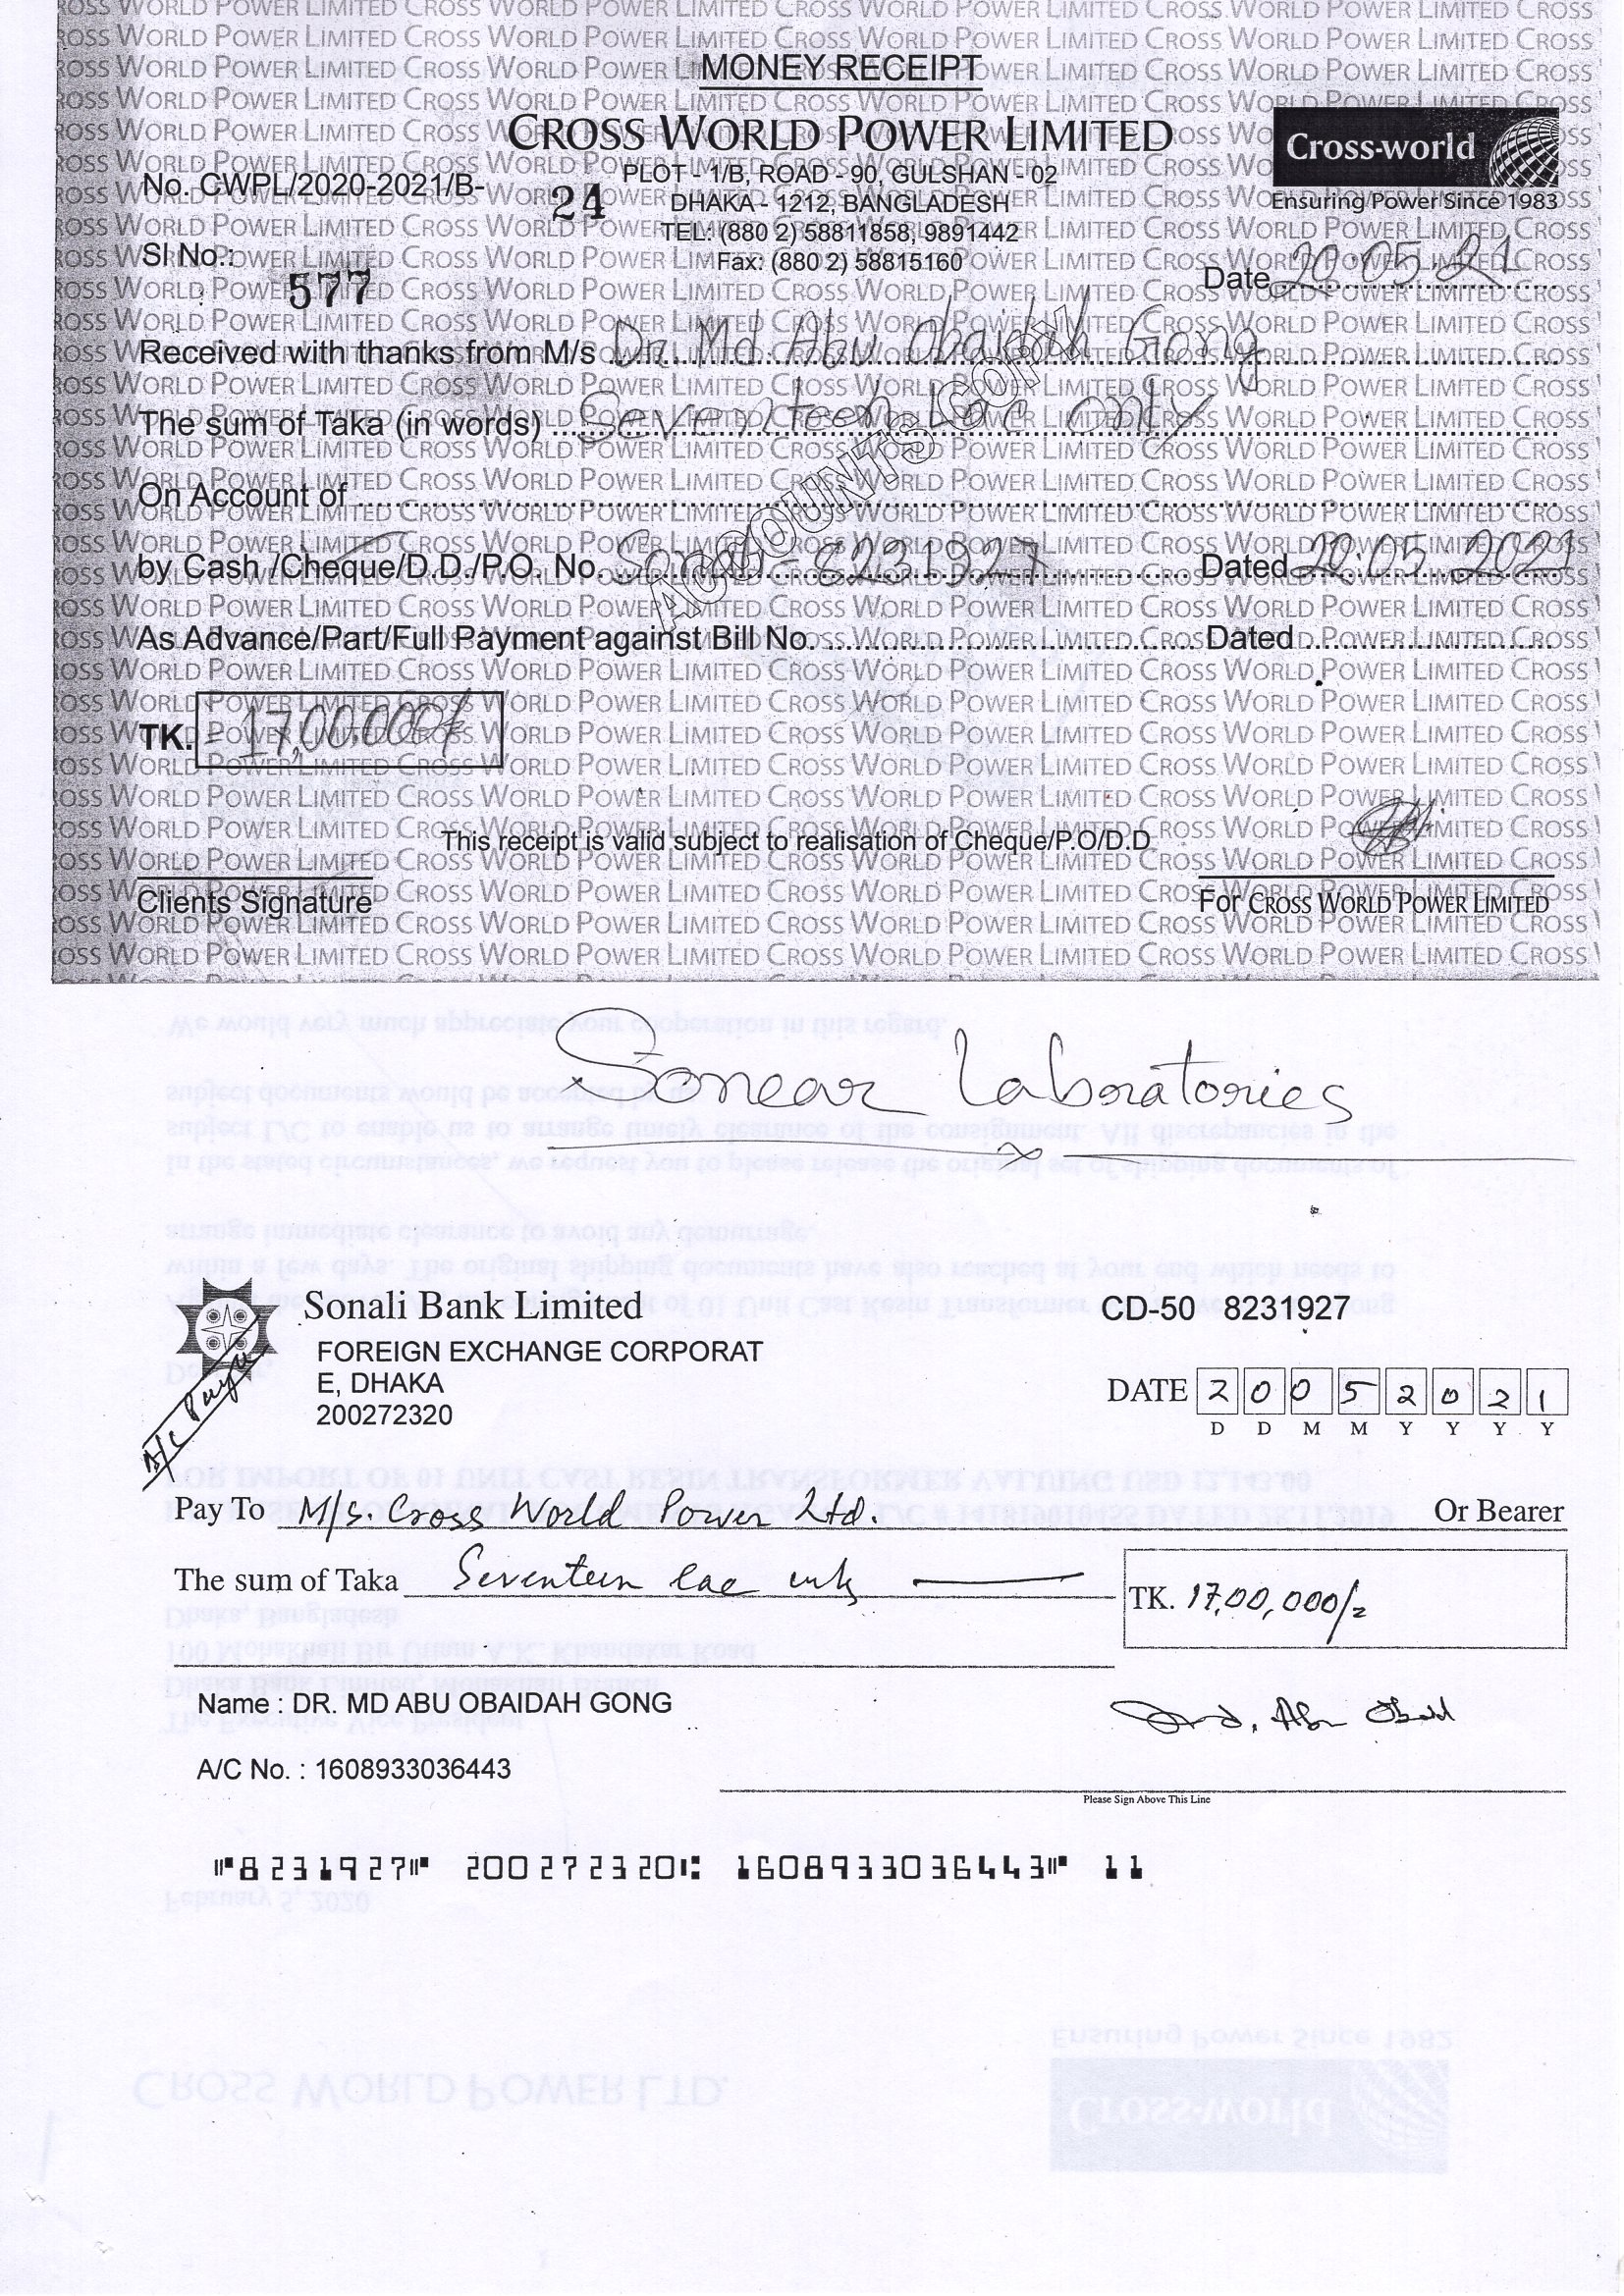 MONEY RECEIPT
CROSS WORLD POWER LIMITED
Cross-world
Ensuring Power Since 1983
PLOT - 1/B, ROAD - 90, GULSHAN - 02
DHAKA - 1212, BANGLADESH
TEL: (880 2) 58811858, 9891442
Fax: (880 2) 58815160
No. CWPL/2020-2021/B- 24
Sl No.: 577
Date 20.05.21
Received with thanks from M/s Dr. Md Abu Obaidah Gong
The sum of Taka (in words) Seventeen lac only
On Account of
by Cash /Cheque/D.D./P.O. No. Sonali - 8231927 Dated 20.05.2021
As Advance/Part/Full Payment against Bill No. Dated
ACCOUNTS COPY
TK. 17,00,000/-
This receipt is valid subject to realisation of Cheque/P.O/D.D
Clients Signature
For CROSS WORLD POWER LIMITED
Sonear Laboratories
Sonali Bank Limited
CD-50 8231927
FOREIGN EXCHANGE CORPORAT
E, DHAKA
200272320
DATE 2 0 0 5 2 0 2 1
D D M M Y Y Y Y
A/C Payee
Pay To M/s. Cross World Power Ltd. Or Bearer
The sum of Taka Seventeen lac only
TK. 17,00,000/=
Name : DR. MD ABU OBAIDAH GONG
Md. Abu Obaid
A/C No. : 1608933036443
Please Sign Above This Line
⑈8231927⑈ 200272320⑆ 1608933036443⑈ 11